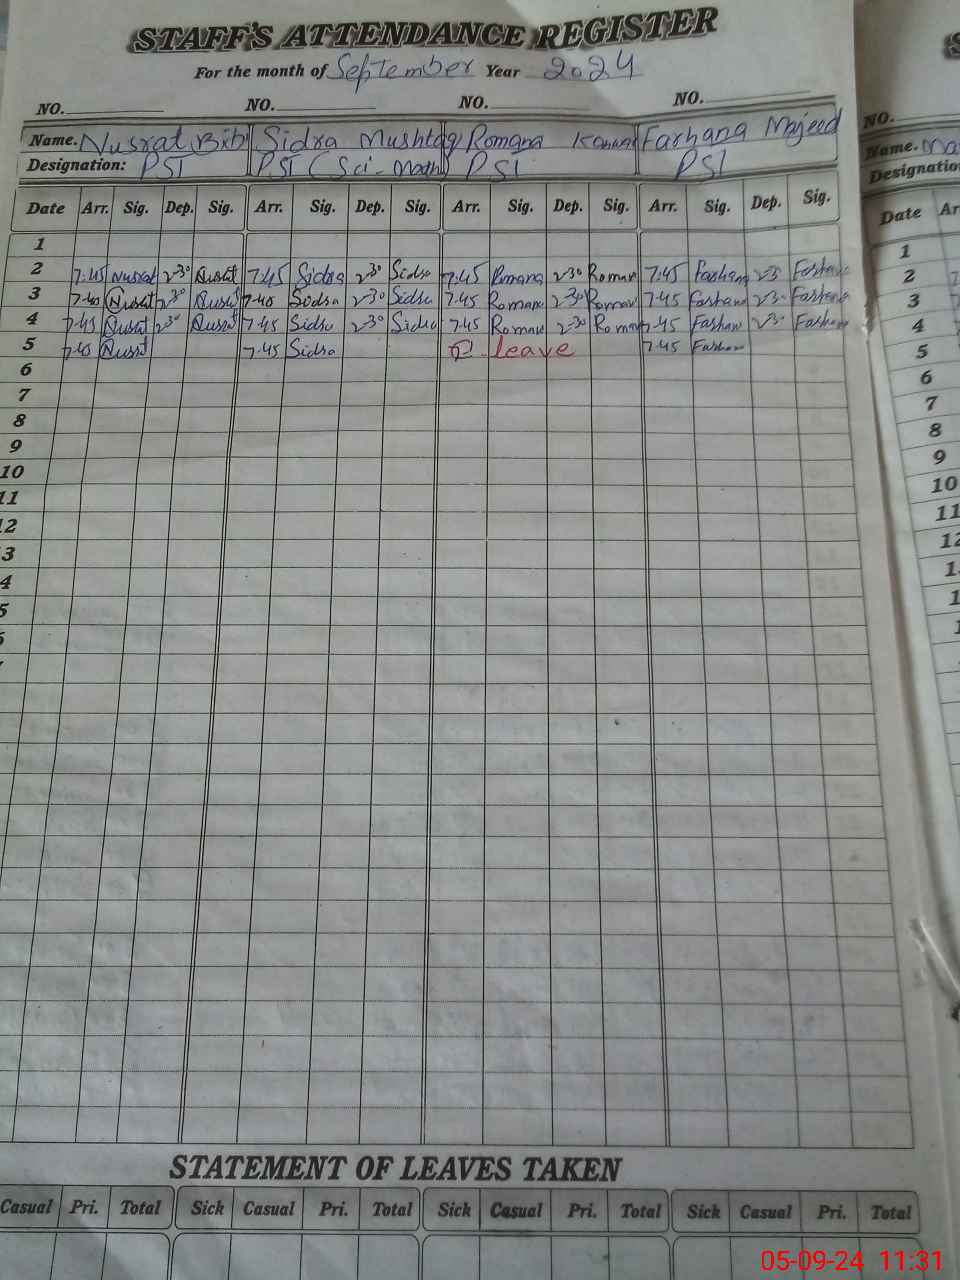 STAFF'S ATTENDANCE REGISTER
For the month of September Year 2024
NO. NO. NO. NO.
Name. Nusrat Bibi Sidra Mushtaq Romana Kanwal Farhana Majeed
Designation: PST PST (Sci-Math) PST PST
Date Arr. Sig. Dep. Sig. Arr. Sig. Dep. Sig. Arr. Sig. Dep. Sig. Arr. Sig. Dep. Sig.
1
2 7.45 Nusrat 2.30 Nusrat 7.45 Sidra 2.30 Sidra 7.45 Romana 2.30 Roman 7.45 Farhana 2.3 Farhana
3 7.40 Nusrat 2.30 Nusrat 7.40 Sidra 2.30 Sidra 7.45 Romana 2.30 Roman 7.45 Farhana 2.3 Farhana
4 7.45 Nusrat 2.30 Nusrat 7.45 Sidra 2.30 Sidra 7.45 Roman 2.30 Roman 7.45 Farhan 2.30 Farhan
5 7.40 Nusrat 7.45 Sidra leave 7.45 Farhan
6
7
8
9
10
11
12
13
4
5
STATEMENT OF LEAVES TAKEN
Casual Pri. Total Sick Casual Pri. Total Sick Casual Pri. Total Sick Casual Pri. Total
NO.
Name.
Designation
Date
1
2
3
4
5
6
7
8
9
10
11
12
05-09-24 11:31